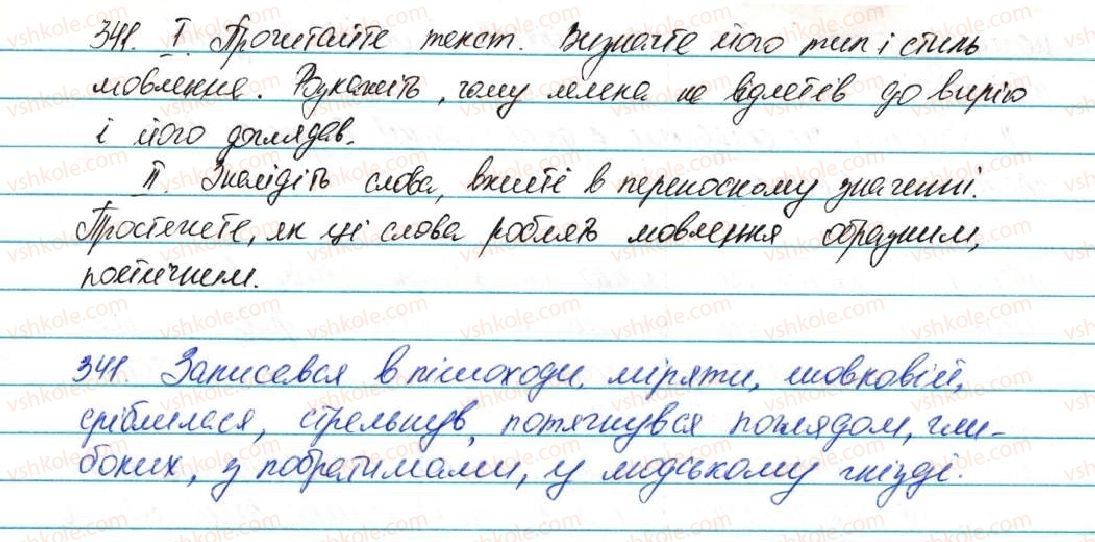 341. I. Прочитайте текст. Визначте його тип і стиль
мовлення. Вукажіть, чому лелека не відлетів до вирію
і його доглядав.
II. Знайдіть слова, вжиті в переносному значенні.
Простежте, як ці слова роблять мовлення образним,
поетичним.
341. Записався в пішоходи, міряти, шовковій,
сріблилася, стрельнув, потягнувся поглядом, гли-
боких, з побратимами, у людському гнізді.